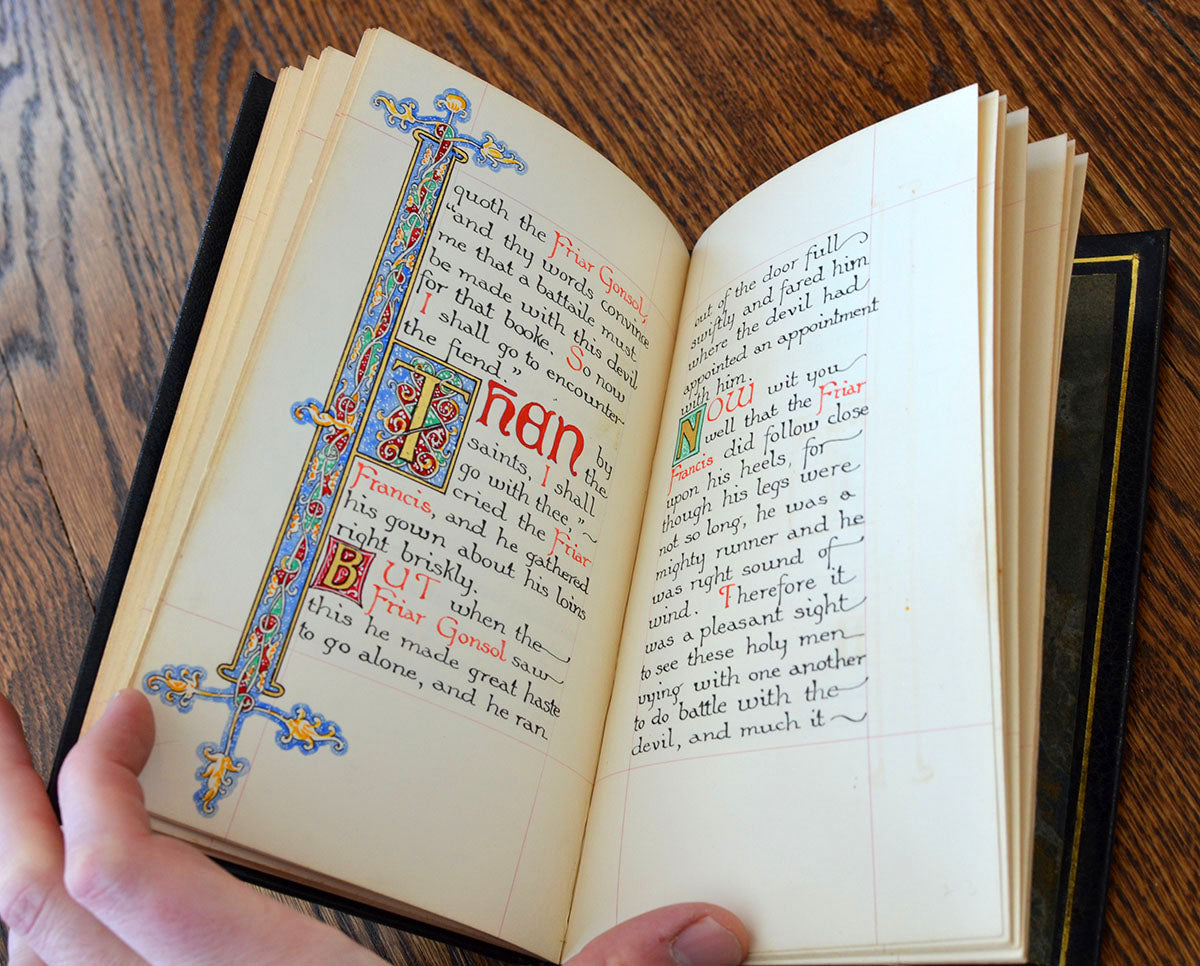 quoth the Friar Gonsol,
"and thy words convince
me that a battaile must
be made with this devil
for that booke. So now
I shall go to encounter
the fiend."
Than by
saints, I shall the
go with thee,"
cried the Friar
Francis, and he gathered
his gown about his loins
right briskly.
BUT when the
Friar Gonsol saw
this he made great haste
to go alone, and he ran
out of the door full
swiftly and fared him
where the devil had
appointed an appointment
with him.
NOW wit you
well that the Friar
Francis did follow close
upon his heels, for
though his legs were
not so long, he was a
mighty runner and he
was right sound of
wind. Therefore it
was a pleasant sight
to see these holy men
vying with one another
to do battle with the
devil, and much it